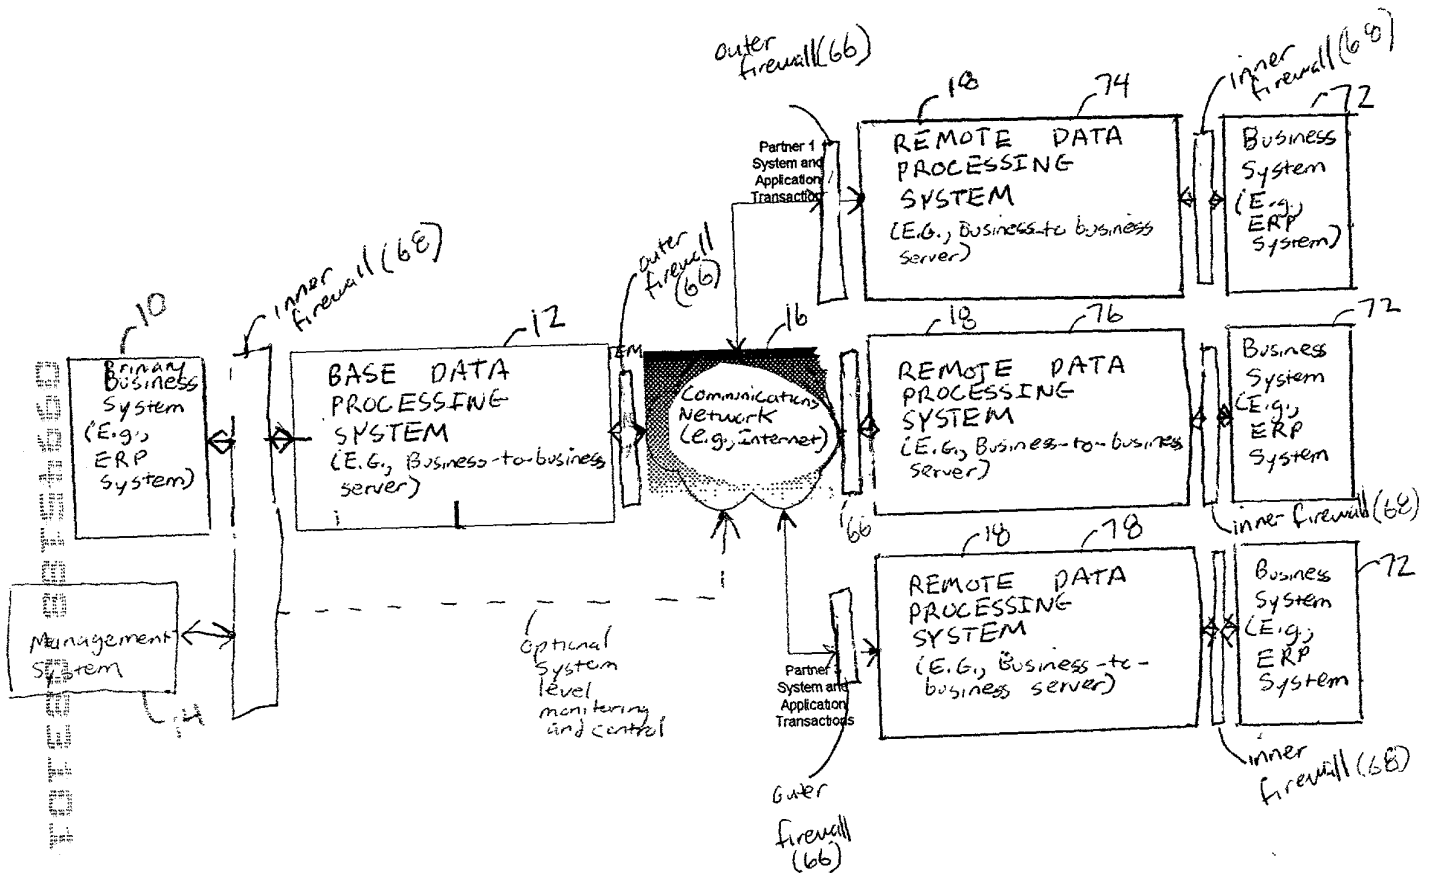 outer
firewall(66)
inner
firewall(68)
18
74
72
Partner 1
System and
Application
Transactions
REMOTE DATA
PROCESSING
SYSTEM
(E.G., Business-to business
server)
Business
System
(E.g.,
ERP
System)
inner
firewall(68)
outer
firewall
(66)
10
12
16
18
76
72
Primary
Business
System
(E.g.,
ERP
System)
BASE DATA
PROCESSING
SYSTEM
(E.G., Business-to-business
server)
EM
Communications
Network
(e.g., Internet)
REMOTE DATA
PROCESSING
SYSTEM
(E.G., Business-to-business
server)
Business
System
(E.g.,
ERP
System)
66
inner firewall(68)
18
78
72
Management
System
14
optional
System
level
monitoring
and control
Partner
System and
Application
Transactions
REMOTE DATA
PROCESSING
SYSTEM
(E.G., Business-to-
business server)
Business
System
(E.g.,
ERP
System)
outer
firewall
(66)
inner
firewall(68)